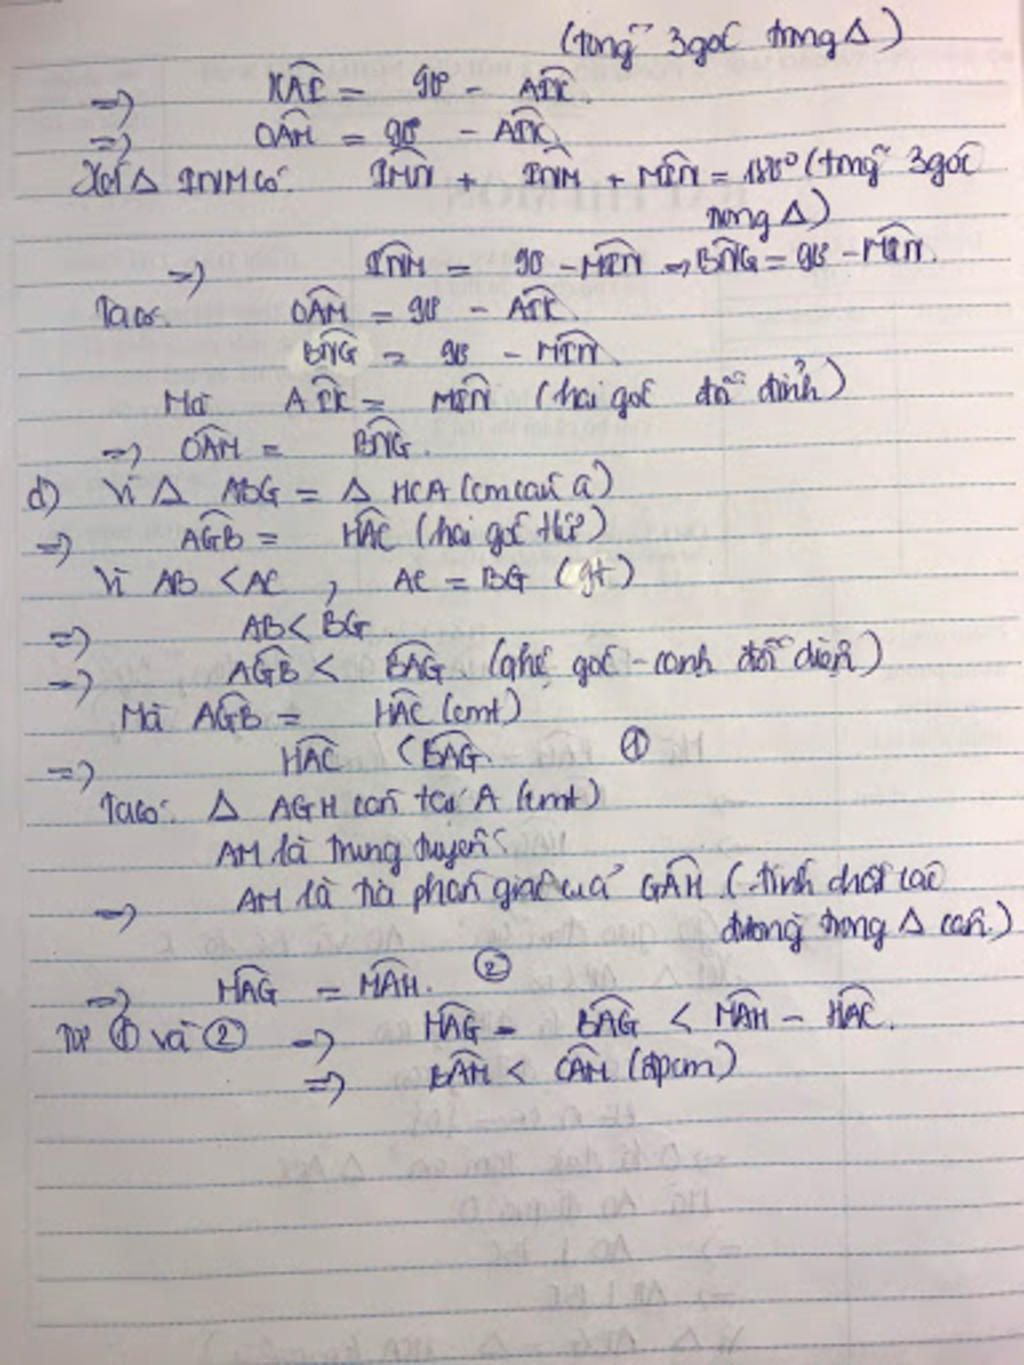 (tổng 3 góc trong Δ)
=> KAI = 90° - AIK.
=> OAM = 90° - AIK
Xét Δ INM có: IMN + INM + MIN = 180° (tổng 3 góc
trong Δ)
=> INM = 90 - MIN => BNG = 90° - MIN.
Ta có: OAM = 90° - AIK.
BNG = 90° - MIN.
Mà AIK = MIN (hai góc đối đỉnh)
=> OAM = BNG.
d) Vì Δ ABG = Δ HCA (cm câu a)
=> AGB = HAC (hai góc t/ư)
Vì AB < AC , AC = BG (gt)
=> AB < BG.
=> AGB < BAG (qhệ góc - cạnh đối diện)
Mà AGB = HAC (cmt)
=> HAC < BAG. ①
Ta có: Δ AGH cân tại A (cmt)
AM là trung tuyến
=> AM là tia phân giác của GAH (tính chất các
đường trong Δ cân.)
=> MAG = MAH. ②
Từ ① và ② => MAG - BAG < MAH - HAC.
=> BAM < CAM (đpcm)